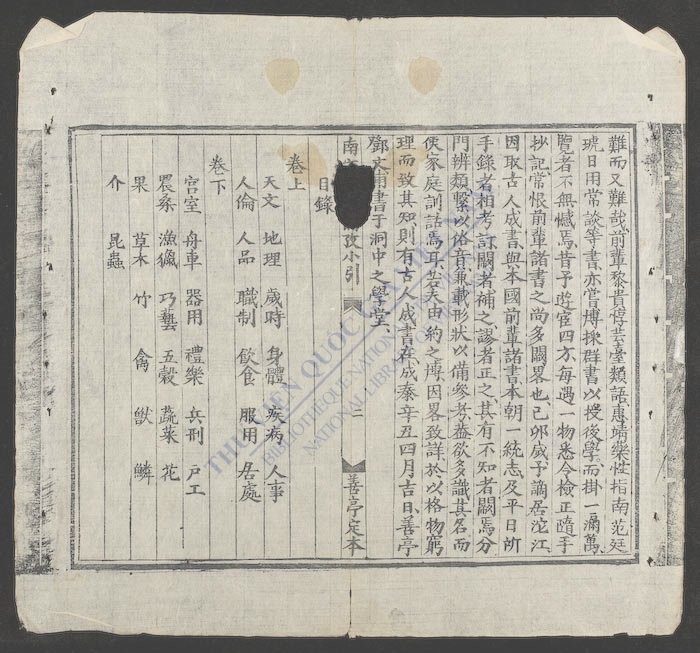 難而又難哉前輩黎貴惇芸臺類語惠靖藥性指南范廷
琥日用常談等書亦嘗博採群書以授後學而掛一漏萬
覽者不無憾焉昔予遊宦四方每遇一物悉令檢正隨手
抄記常恨前輩諸書之尚多闕畧也己卯歲予謫居沱江
因取古人成書與本國前輩諸書本朝一統志及平日所
手錄者相考訂闕者補之謬者正之其有不知者闕焉分
門辨類繫以俗音兼載形狀以備參考盖欲多識其名而
便家庭訓詁焉耳若夫由約之博因畧致詳於以格物窮
理而致其知則有古人成書在成泰辛丑四月吉日善亭
鄧文甫書于洞中之學堂
南 攷小引 二 善亭定本
目錄
卷上
天文 地理 歲時 身體 疾病 人事
人倫 人品 職制 飲食 服用 居處
卷下
宫室 舟車 器用 禮樂 兵刑 户工
農桑 漁獵 巧藝 五穀 蔬菜 花
果 草木 竹 禽 獸 鱗
介 昆蟲
THU VIEN QUOC GIA
BIBLIOTHEQUE NATIONALE
NATIONAL LIBRARY